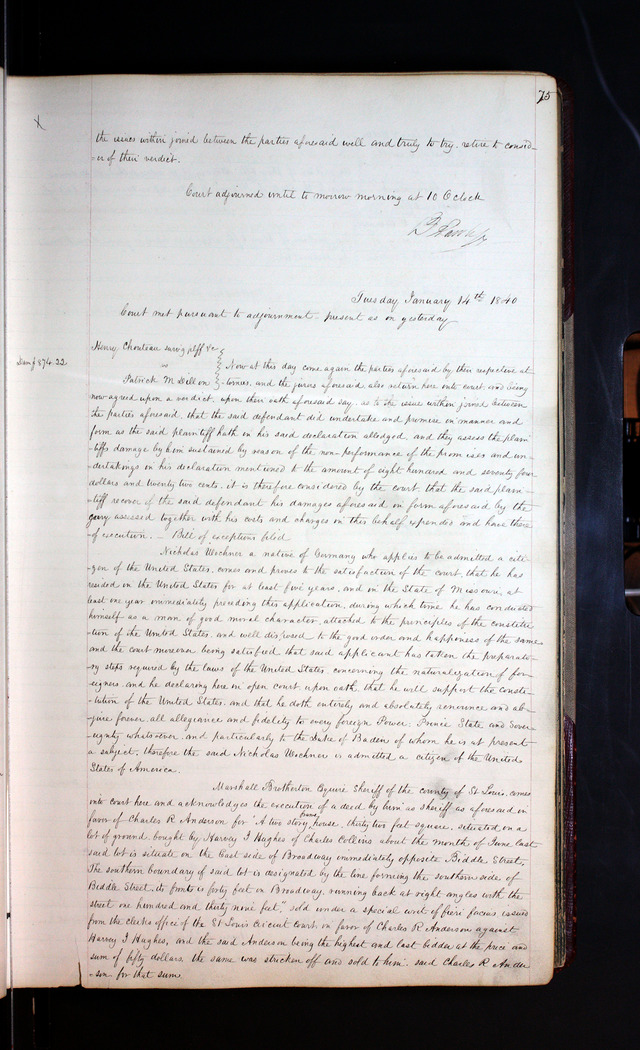 75
X
the issues within joined between the parties aforesaid well and truly to try. retire to consid-
-er of their verdict.
Court adjourned until to morrow morning at 10 OClock
Tuesday January 14th 1840
Court met pursuant to adjournment. present as on yesterday
Henry Chouteau surv'g plff &c
vs
Dam$ 874.22
Now at this day come again the parties aforesaid by their respective at-
Patrick M Dillon
-tornies, and the jurors aforesaid also return here into court, and being
now agreed upon a verdict, upon their oath aforesaid say, as to the issue within joined between
the parties aforesaid, that the said defendant did undertake and promise in manner and
form as the said plaintiff hath in his said declaration alledged, and they assess the plain-
-tiffs damage by him sustained by reason of the non-performance of the promises and un-
-dertakings in his declaration mentioned to the amount of eight hundred and seventy four
dollars and twenty two cents. it is therefore considered by the court that the said plain-
-tiff recover of the said defendant his damages aforesaid in form aforesaid by the
jury assessed together with his costs and charges in this behalf expended and have there
of execution. — Bill of exceptions filed
Nicholas Wochner a native of Germany who applies to be admitted a citi-
-zen of the United States, comes and proves to the satisfaction of the court, that he has
resided in the United States for at least five years, and in the State of Missouri, at
least one year immediately preceding this application, during which time he has conducted
himself as a man of good moral character, attached to the principles of the constitu-
-tion of the United States, and well disposed to the good order and happiness of the same
and the court moreover being satisfied, that said applicant has taken the preparato-
-ry steps required by the laws of the United States, concerning the naturalization of for-
-eigners. and he declaring here in open court upon oath, that he will support the consti-
-tution of the United States, and that he doth entirely and absolutely renounce and ab-
-jure forever all allegiance and fidelity to every foreign Power, Prince State and Sover-
-eignty whatsoever, and particularly to the Duke of Baden of whom he is at present
a subject, therefore the said Nicholas Wochner is admitted a citizen of the United
States of America.
Marshall Brotherton Esquire Sheriff of the county of St Louis, comes
into court here and acknowledges the execution of a deed by him as sheriff as aforesaid in
favor of Charles R. Anderson for "A two story frame house, thirty two feet square, situated on a
lot of ground, bought by Harvey I Hughes of Charles Collins about the month of June last
said lot is situate on the East side of Broadway immediately opposite Biddle Street,
The southern boundary of said lot is designated by the line forming the southern side of
Biddle Street, its fronts is forty feet on Broadway, running back at right angles with the
street one hundred and thirty nine feet," sold under a special writ of fieri facias, issued
from the clerks office of the St Louis circuit court, in favor of Charles R Anderson against
Harvey I Hughes, and the said Anderson being the highest and last bidder at the price and
sum of fifty dollars, the same was stricken off and sold to him. said Charles R Ander
-son for that sum